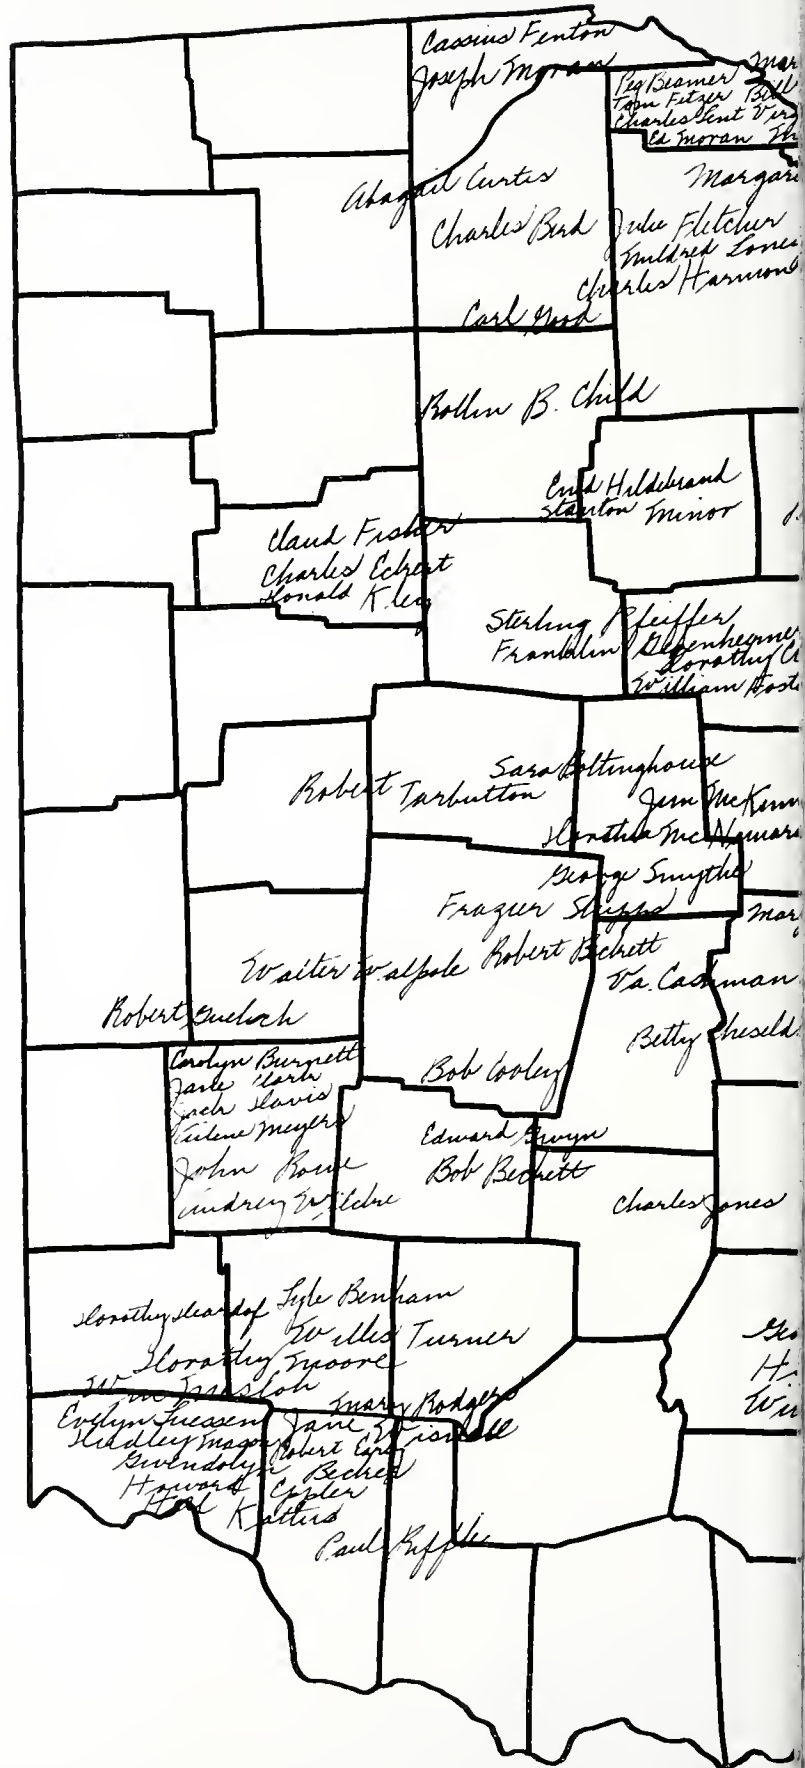 Cassius Fenton
Joseph Moran
Peg Beamer Mar
Tom Fetzer Bill
Charles Lent Virg
Ed Moran
Abagail Curtis
Margare
Charles Bird
Julie Fletcher
Mildred Lones
Charles Harmon
Carl Good
Rollin B. Child
Enid Hildebrand
Stanton Minor
Claud Fisher
Charles Eckert
Donald King
Sterling Pfeiffer
Franklin Degenheimer
Dorothy C
William Host
Sara Boltinghouse
Robert Tarbutton
Jim McKenn
McNamara
George Smythe
Frazier Shipps
Mar
Robert Beckett
Walter Walpole
Va. Cashman
Robert
Betty Cheseld
Bob Cooley
Carolyn Burnett
Jane Clark
Jack Davis
Meyers
John Rowe
Audrey Wildre
Edward Gwyn
Bob Beckett
Charles Jones
Dorothy Deardof
Lyle Benham
Willis Turner
Dorothy Moore
Wm Masloh
Geo
H
Wil
Mary Rodgers
Evelyn Luessen
Jane Wisnall
Hadley Mason
Robert Earz
Gwendolyn Becher
Howard Eppler
Hal Katlus
Paul Riffle